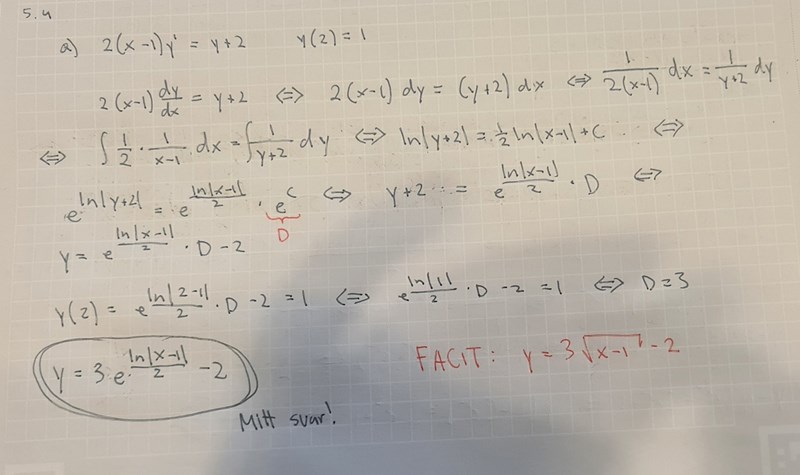 5.4
a) 2(x-1)y' = y+2 y(2) = 1
2(x-1) dy/dx = y+2 ⇔ 2(x-1) dy = (y+2) dx ⇔ 1/(2(x-1)) dx = 1/(y+2) dy
⇔ ∫ 1/2 · 1/(x-1) dx = ∫ 1/(y+2) dy ⇔ ln|y+2| = 1/2 ln|x-1| + C ⇔
e^(ln|y+2|) = e^(ln|x-1|/2) · e^C ⇔ y+2 = e^(ln|x-1|/2) · D ⇔
D
y = e^(ln|x-1|/2) · D - 2
y(2) = e^(ln|2-1|/2) · D - 2 = 1 ⇔ e^(ln|1|/2) · D - 2 = 1 ⇔ D = 3
y = 3 · e^(ln|x-1|/2) - 2 FACIT: y = 3√(x-1) - 2
Mitt svar!